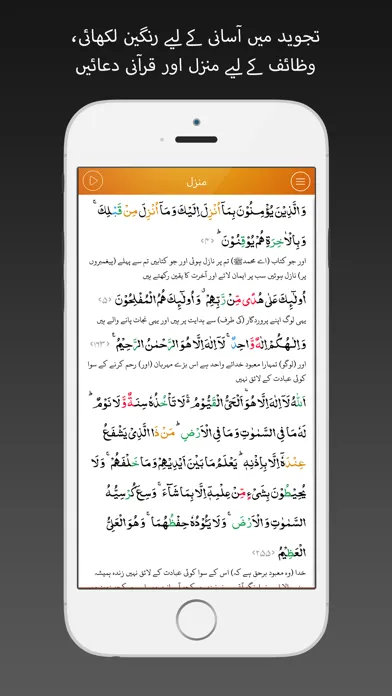 تجوید میں آسانی کے لیے رنگین لکھائی،
وظائف کے لیے منزل اور قرآنی دعائیں
منزل
وَالَّذِيْنَ يُؤْمِنُوْنَ بِمَآ اُنْزِلَ اِلَيْكَ وَمَآ اُنْزِلَ مِنْ قَبْلِكَ ۚ
وَبِالْاٰخِرَةِ هُمْ يُوْقِنُوْنَ ؕ ﴿۴﴾
اور جو کتاب (اے محمدﷺ) تم پر نازل ہوئی اور جو کتابیں تم سے پہلے (پیغمبروں
پر) نازل ہوئیں سب پر ایمان لاتے اور آخرت کا یقین رکھتے ہیں
اُولٰٓئِكَ عَلٰى هُدًى مِّنْ رَّبِّهِمْ ۙ وَاُولٰٓئِكَ هُمُ الْمُفْلِحُوْنَ ﴿۵﴾
یہی لوگ اپنے پروردگار (کی طرف) سے ہدایت پر ہیں اور یہی نجات پانے والے ہیں
وَاِلٰـهُكُمْ اِلٰهٌ وَّاحِدٌ ۚ لَآ اِلٰهَ اِلَّا هُوَ الرَّحْمٰنُ الرَّحِيْمُ ۚ ﴿۱۶۳﴾
اور (لوگو) تمہارا معبود خدائے واحد ہے اس بڑے مہربان (اور) رحم کرنے کے سوا
کوئی عبادت کے لائق نہیں
اَللّٰهُ لَآ اِلٰهَ اِلَّا هُوَ ۚ اَلْحَىُّ الْقَيُّوْمُ ۚ لَا تَاْخُذُهٗ سِنَةٌ وَّلَا نَوْمٌ ؕ
لَهٗ مَا فِى السَّمٰوٰتِ وَمَا فِى الْاَرْضِ ؕ مَنْ ذَا الَّذِىْ يَشْفَعُ
عِنْدَهٗٓ اِلَّا بِاِذْنِهٖ ؕ يَعْلَمُ مَا بَيْنَ اَيْدِيْهِمْ وَمَا خَلْفَهُمْ ۚ وَلَا
يُحِيْطُوْنَ بِشَىْءٍ مِّنْ عِلْمِهٖٓ اِلَّا بِمَا شَآءَ ۚ وَسِعَ كُرْسِيُّهُ
السَّمٰوٰتِ وَالْاَرْضَ ۚ وَلَا يَـُٔوْدُهٗ حِفْظُهُمَا ۚ وَهُوَ الْعَلِىُّ
الْعَظِيْمُ ﴿۲۵۵﴾
خدا (وہ معبود برحق ہے کہ) اس کے سوا کوئی عبادت کے لائق نہیں زندہ ہمیشہ